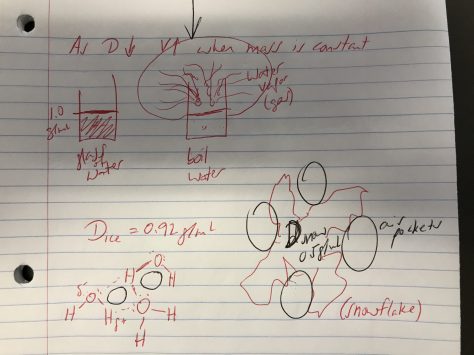 As D↓ V↑ when mass is constant
water
vapor
(gas)
1.0
g/mL
glass
of
water
boil
water
Dice = 0.92 g/mL
Dsnow
0.5 g/mL
air
pockets
(snowflake)
δ-
O
H
H
δ+
H
O
H
O
H
H